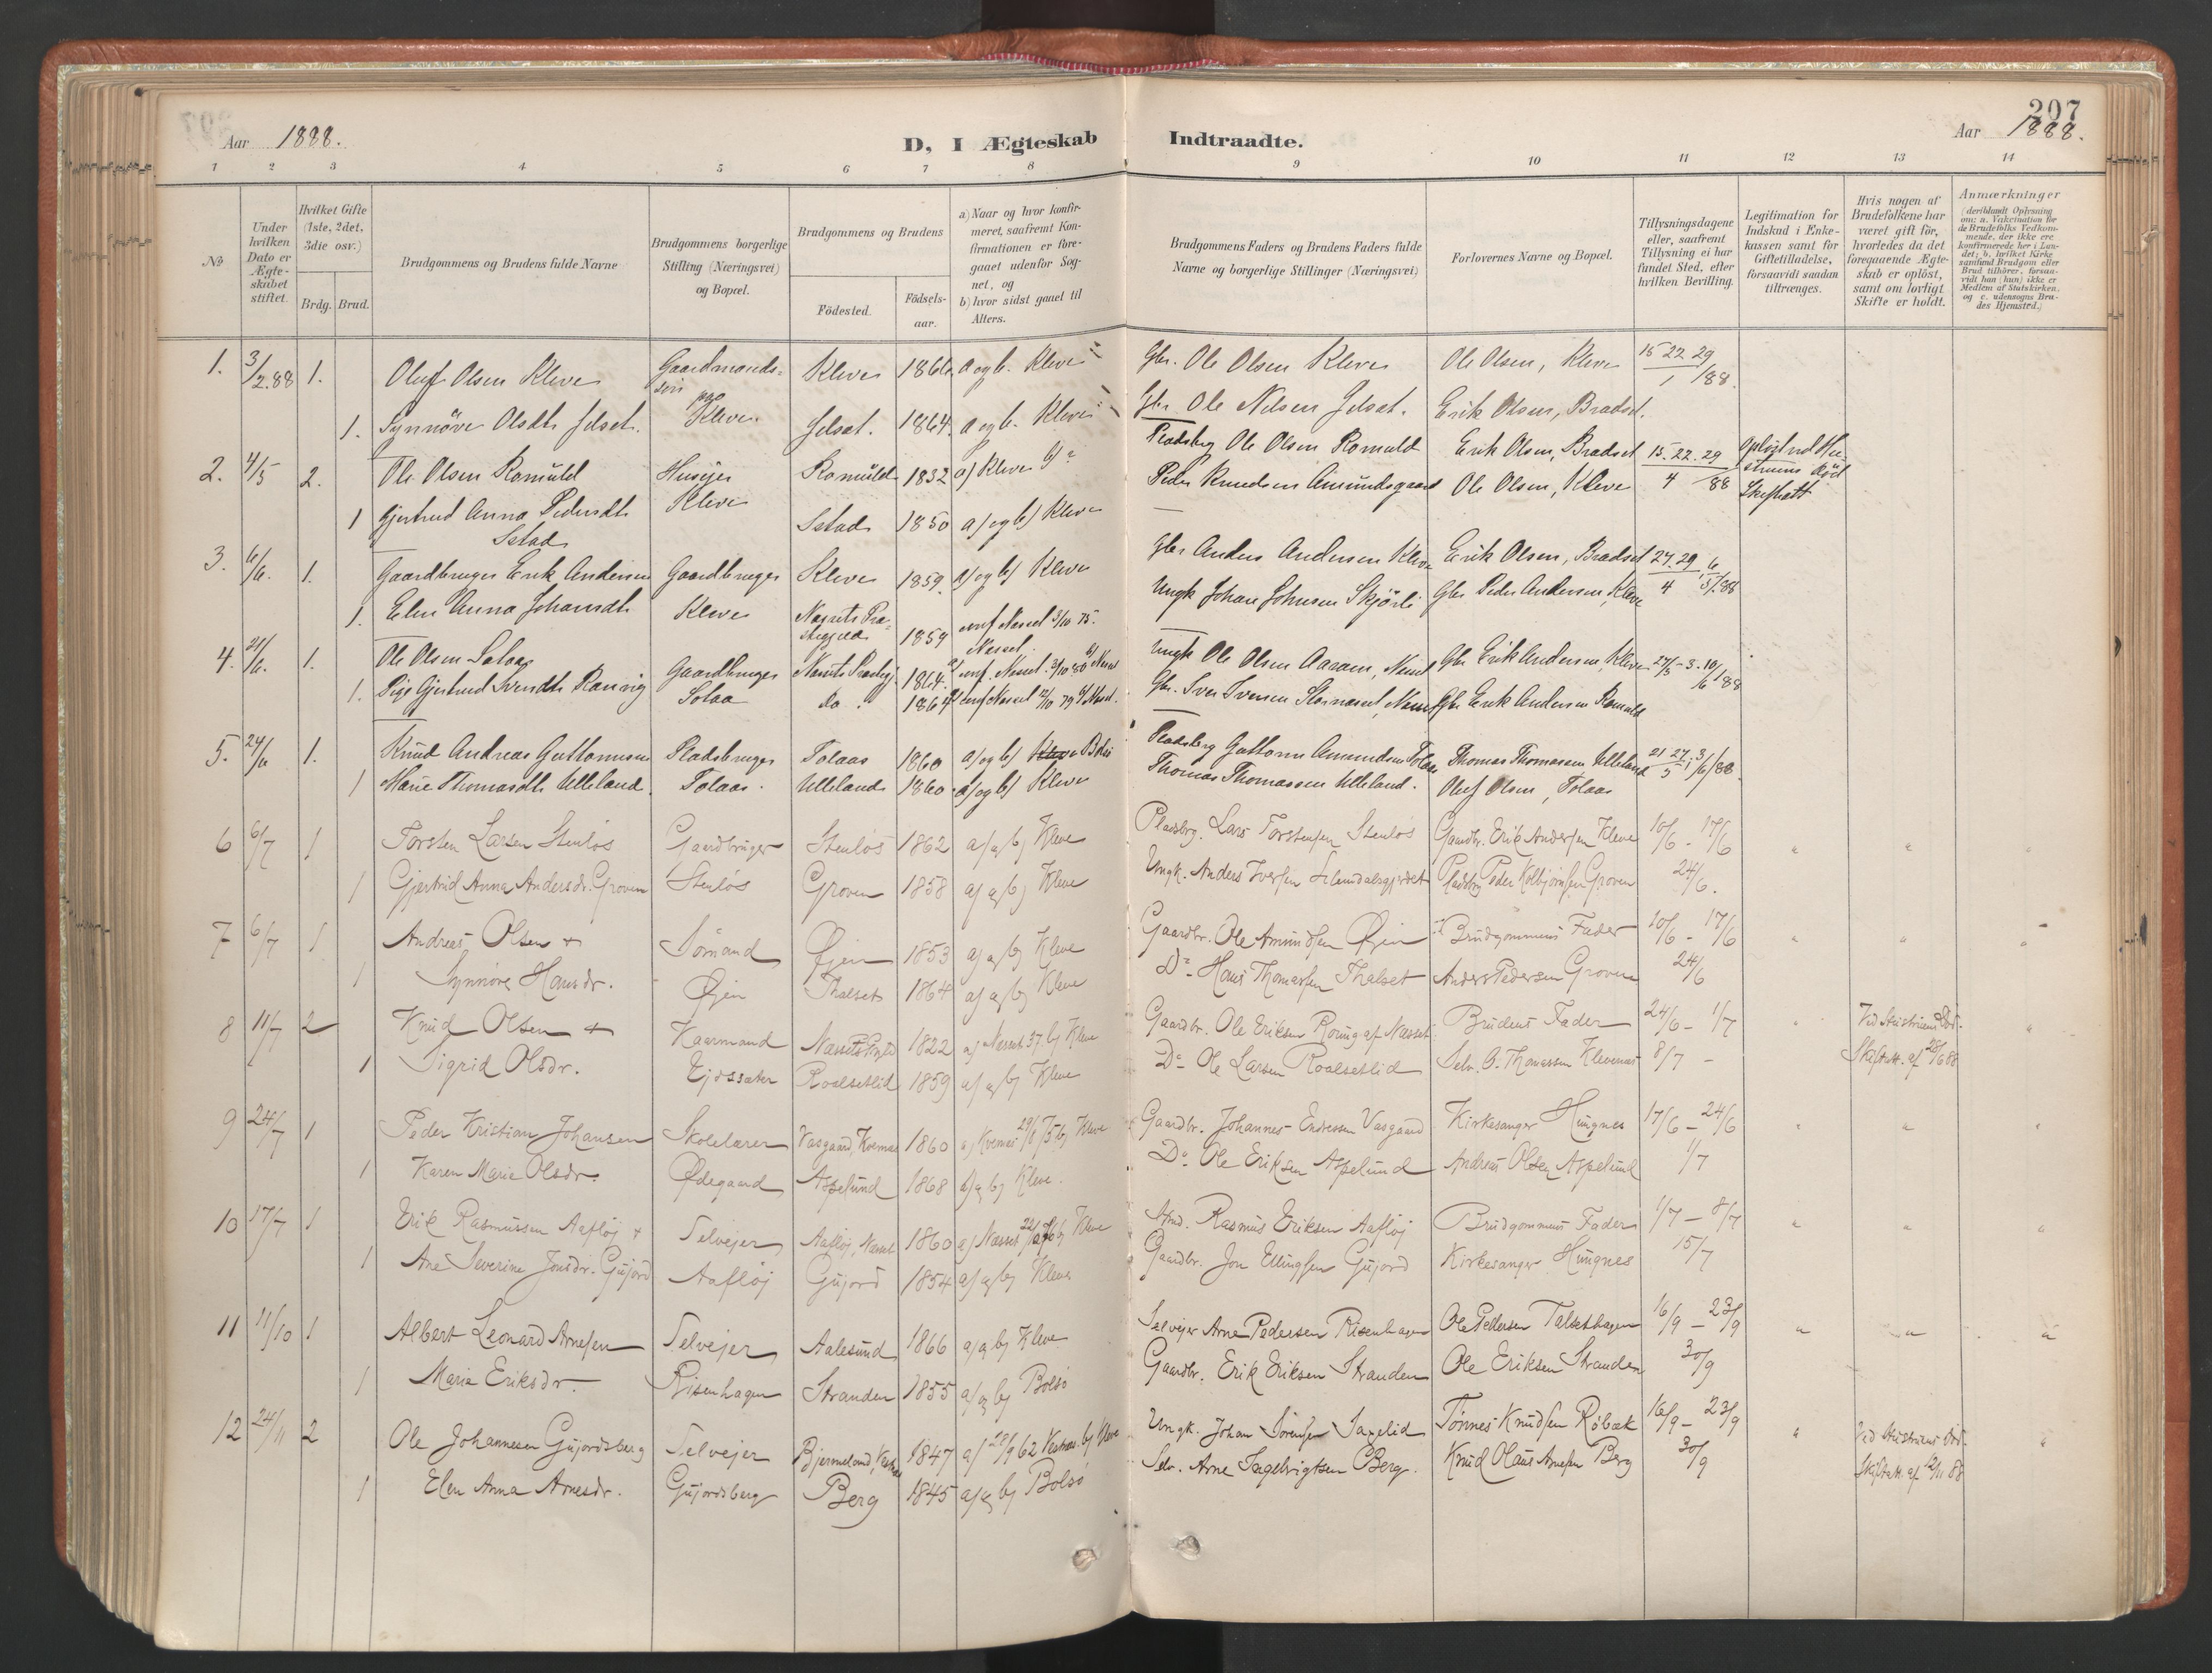 207
Aar 1888.
D, I Ægteskab Indtraadte.
Aar 1888.
1 2 3 4 5 6 7 8 9 10 11 12 13 14
No
Under hvilken Dato er Ægteskabet stiftet.
Hvilket Gifte (1ste, 2det, 3die osv.)
Brdg. Brud.
Brudgommens og Brudens fulde Navne
Brudgommens borgerlige Stilling (Næringsvei) og Bopæl.
Brudgommens og Brudens
Födested.
Födselsaar.
a) Naar og hvor konfirmeret, saafremt Konfirmationen er foregaaet udenfor Sognet, og
b) hvor sidst gaaet til Alters.
Brudgommens Faders og Brudens Faders fulde Navne og borgerlige Stillinger (Næringsvei)
Forlovernes Navne og Bopæl.
Tillysningsdagene eller, saafremt Tillysning ei har fundet Sted, efter hvilken Bevilling.
Legitimation for Indskud i Enkekassen samt for Giftetilladelse, forsaavidt saadan tiltrænges.
Hvis nogen af Brudefolkene har været gift för, hvorledes da det foregaaende Ægteskab er oplöst, samt om lovligt Skifte er holdt.
Anmærkninger (deriblandt Oplysning om: a. Vaksination for de Brudefolks Vedkommende, der ikke ere konfirmerede her i Landet; b. hvilket Kirkesamfund Brudgom eller Brud tilhörer, forsaavidt han (hun) ikke er Medlem af Statskirken, og c. udensogns Brudes Hjemsted.)
1. 3/2.88 1. Oluf Olsen Kleve Gaardmandssön Kleve 1866 a og b. Kleve Gbr. Ole Olsen Kleve Ole Olsen, Kleve 15 22 29/1 /88.
1. Synnöve Olsdt. Jelset. Kleve. Jelset. 1864. a og b. Kleve Gbr Ole Nilsen Jelset. Erik Olsen, Bradset.
2. 4/5 2. Ole Olsen Romuld Husejer Romuld 1832 a) Kleve Pladsbrg Ole Olsen Romuld Erik Olsen, Bradset 15. 22. 29/4 88
1 Gjertrud Anna Pedersdt. Kleve 1850 a) og b) Kleve Peder Knudsen Amundsgaard Ole Olsen, Kleve
3. 6/6. 1. Gaardbruger Erik Andersen Gaardbruger Kleve 1859. a) og b) Kleve Gbr Anders Andersen Kleve Erik Olsen, Bradset 27. 29/4, 6/5/88
1. Elen Anna Johansdt. Kleve Næssets Præstegjeld 1859 conf Nesset 3/10 75. Nesset. Ungk Johan Johnsen Skjörli Gbr Peder Andersen, Kleve
4. 21/6. 1. Ole Olsen Solaa Gaardbruger Næssets Præstegj. 1864. Ungk Ole Olsen Aaram, Nesset Gbr Erik Andersen Kleve 27/5 - 3. 10/6/88
1. Pige Gjertrud Svendt. Ranvig Solaa do. 1864 Gbr. Sven Svensen Stornæset, Nesset Gbr Erik Andersen Romuld
5. 24/6 1. Knud Andreas Guttormsen Pladsbruger Tolaas 1860 a) og b) Kleve Bolsö Pladsbrg Guttorm Amundsen Tolaas Thomas Thomassen Ulleland 21 27/5, 3/6/88.
1 Marie Thomasdt. Ulleland. Tolaas. Ulleland 1860 a) og b) Kleve Thomas Thomassen Ulleland. Oluf Olsen, Tolaas
6 6/7 1 Torsten Larsen Stenlös Gaardbruger Stenlös 1862 a) og b) Kleve Pladsbrg. Lars Torstensen Stenlös Gaardbr. Erik Andersen Kleve 10/6 - 17/6 " " "
1 Gjertrud Anna Andersdr. Groven Stenlös Groven 1858 a) og b) Kleve Ungk. Anders Iversen Pladsbrg Peder Kolbjørnsen Groven 24/6.
7 6/7 1 Andreas Olsen + Sömand Øjen 1853 a) og b) Kleve Gaardbr. Ole Amundsen Øjen Brudgommens Fader 10/6 - 17/6 " " "
1 Synnöve Hansdr. Øjen Thalset 1864 a) og b) Kleve Do Hans Thomassen Thalset Anders Pedersen Groven 24/6
8 11/7 2 Knud Olsen + Kaarmand Næssets Prgld 1822 a) Nesset 37. b) Kleve Gaardbr. Ole Eriksen Roung af Næsset Brudens Fader 24/6 - 1/7 " Ved Hustruens Död. "
1 Sigrid Olsdr. Ejdssæter Roalsetlid 1859 a) og b) Kleve Do Ole Larsen Roalsetlid Selv. O. Thomassen Klevenes 8/7 - Skifteatt. af 28/6 88
9 24/7 1 Peder Kristian Johansen Skolelærer Vasgaard, Kvernæs 1860 a) Kvernæs b) Kleve Gaardbr. Johannes Endresen Vasgaard Kirkesanger Hungnes 17/6 - 24/6 " " "
1 Karen Marie Olsdr. Ødegaard Aspelund 1868 a) og b) Kleve. Do Ole Eriksen Aspelund Andreas Olsen Aspelund 1/7
10 17/7 1 Erik Rasmussen Aafløj + Selvejer Aafløj, Næsset 1860 a) Næsset b) Kleve Rasmus Eriksen Aafløj Brudgommens Fader 1/7 - 8/7 " " "
1 Ane Severine Jonsdr. Gujord Aafløj Gujord 1854 a) og b) Kleve Gaardbr. Jon Ellingsen Gujord Kirkesanger Hungnes 15/7
11 11/10 1 Albert Leonard Arnesen Selvejer Aalesund 1866 a) og b) Kleve Selvejer Arne Pedersen Risenhagen Ole Pedersen Talsethagen 16/9 - 23/9 " " "
1 Marie Eriksdr. Risenhagen Stranden 1855 a) og b) Bolsö Gaardbr. Erik Eriksen Stranden Ole Eriksen Stranden 30/9
12 24/11 2 Ole Johannesen Gujordsberg Selvejer Bjermeland, Vestnæs 1847 a) 28/9 62 Vestnæs b) Kleve Ungk. Johan Sörensen Sagelid Tönnes Knudsen Röbæk 16/9 - 23/9 " Ved Hustruens Död. "
1 Elen Anna Arnesdr. Gujordsberg Berg 1845 a) og b) Bolsö Selv. Arne Ingebrigtsen Berg. Knud Olaus Arnesen Berg 30/9 Skifteatt. af 12/11 88